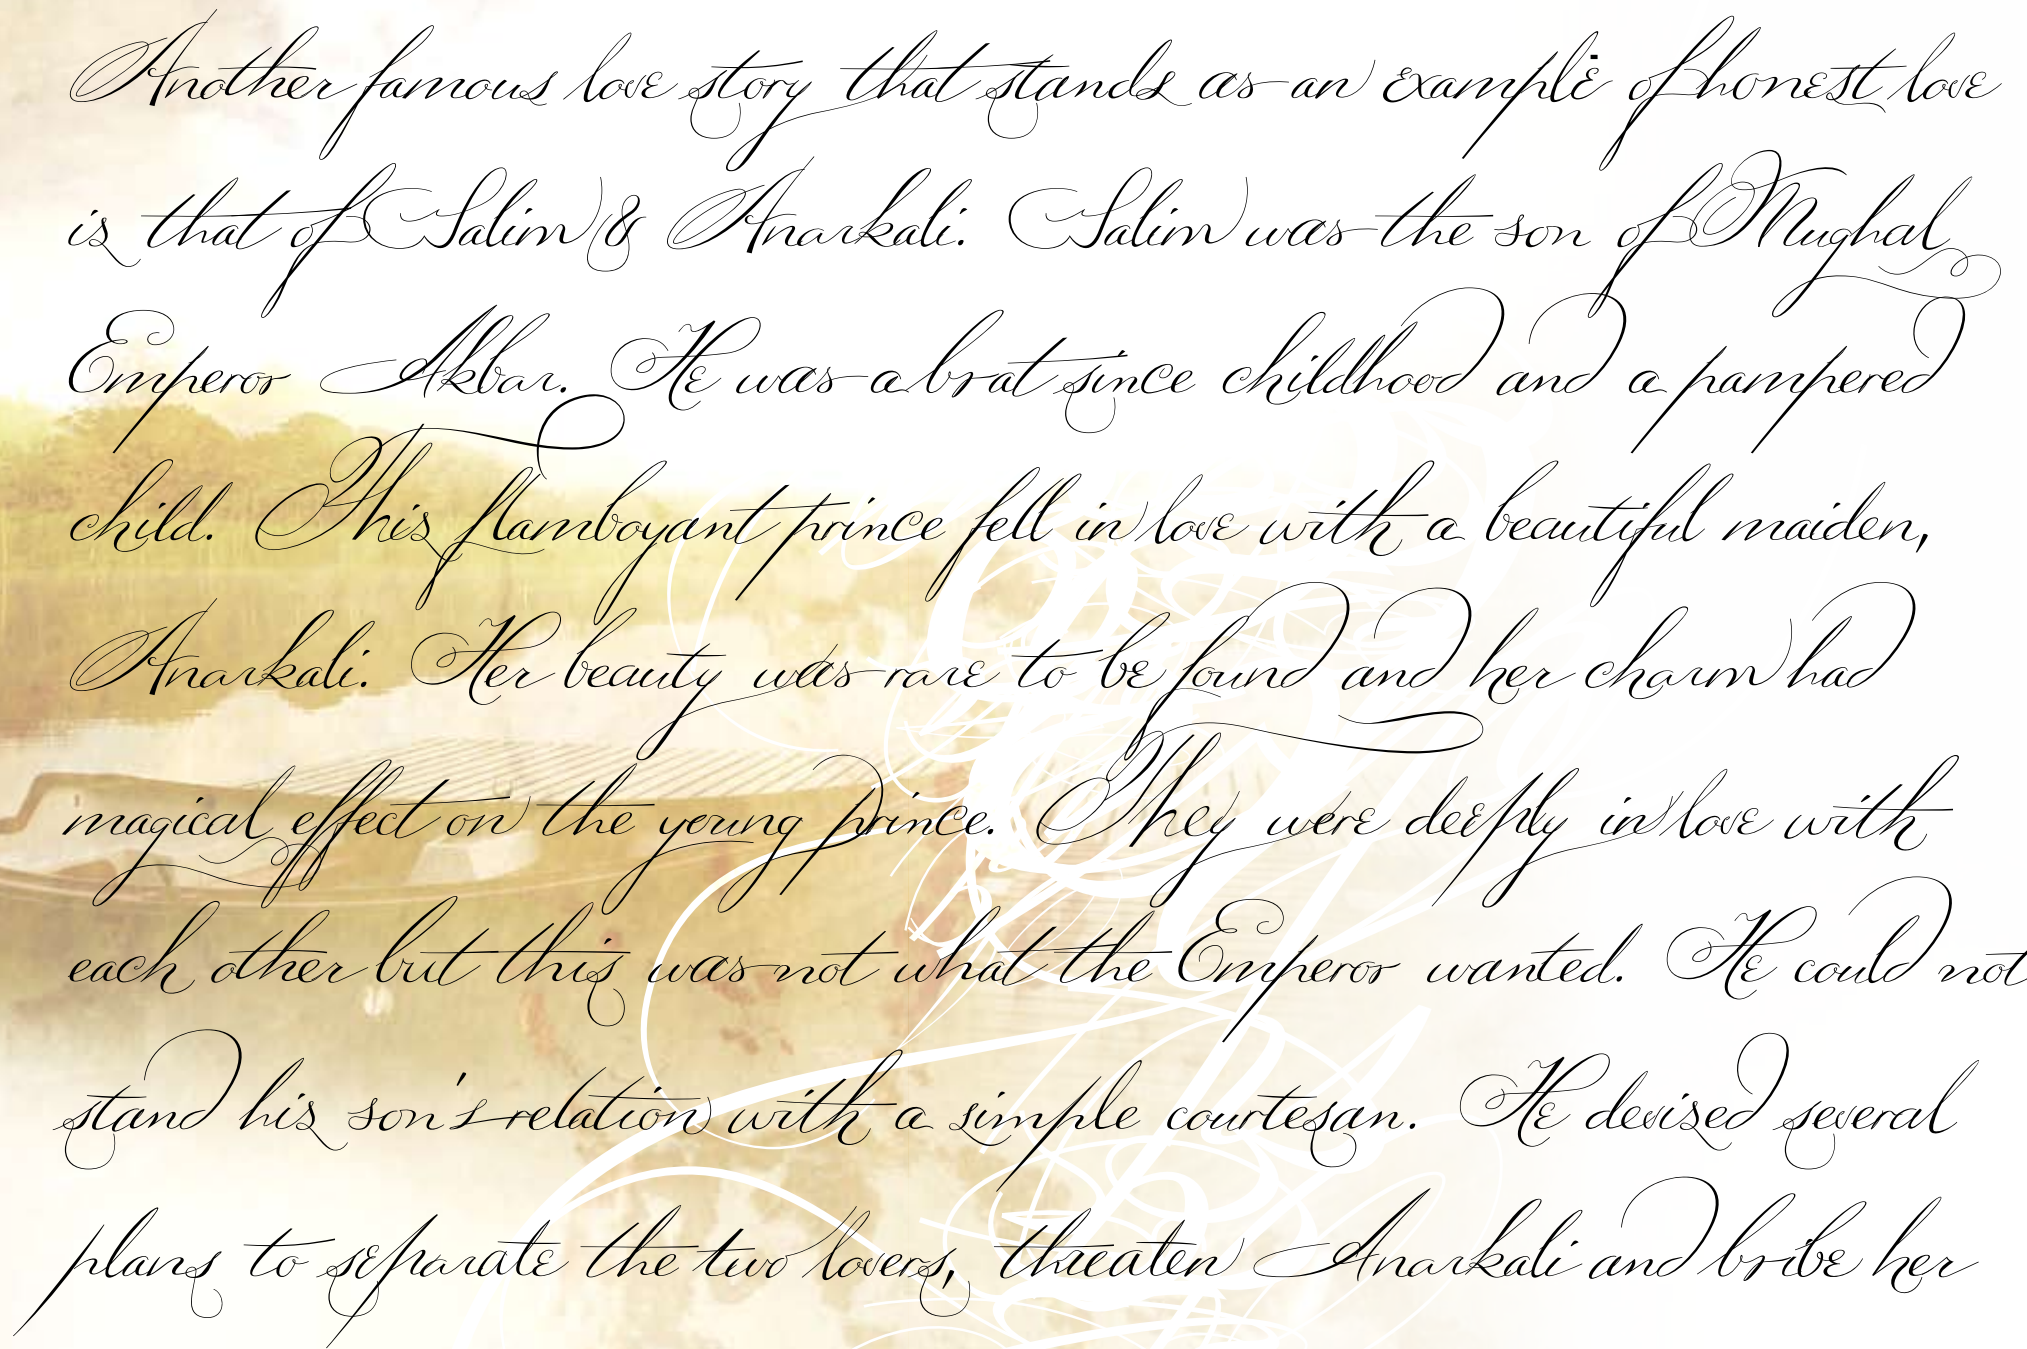 Another famous love story that stands as an example of honest love
is that of Salim & Anarkali. Salim was the son of Mughal
Emperor Akbar. He was a brat since childhood and a pampered
child. This flamboyant prince fell in love with a beautiful maiden,
Anarkali. Her beauty was rare to be found and her charm had
magical effect on the young prince. They were deeply in love with
each other but this was not what the Emperor wanted. He could not
stand his son's relation with a simple courtesan. He devised several
plans to separate the two lovers, threaten Anarkali and bribe her